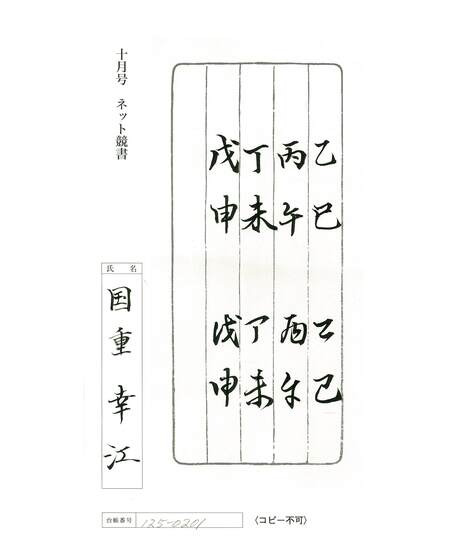 十月号　ネット競書
乙巳　乙巳
丙午　丙午
丁未　丁未
戊申　戊申
氏名
国重幸江
台帳番号 125-0201
〈コピー不可〉